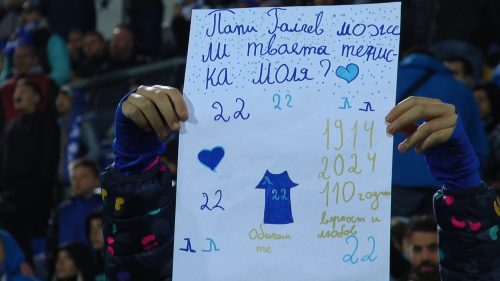 Папи Галчев може
ли твоята тенис-
ка моля?
22
22
Л Л
1914
2024
110 години
вярност и
любов
22
Л
22
22
Л Л
Обичам
те